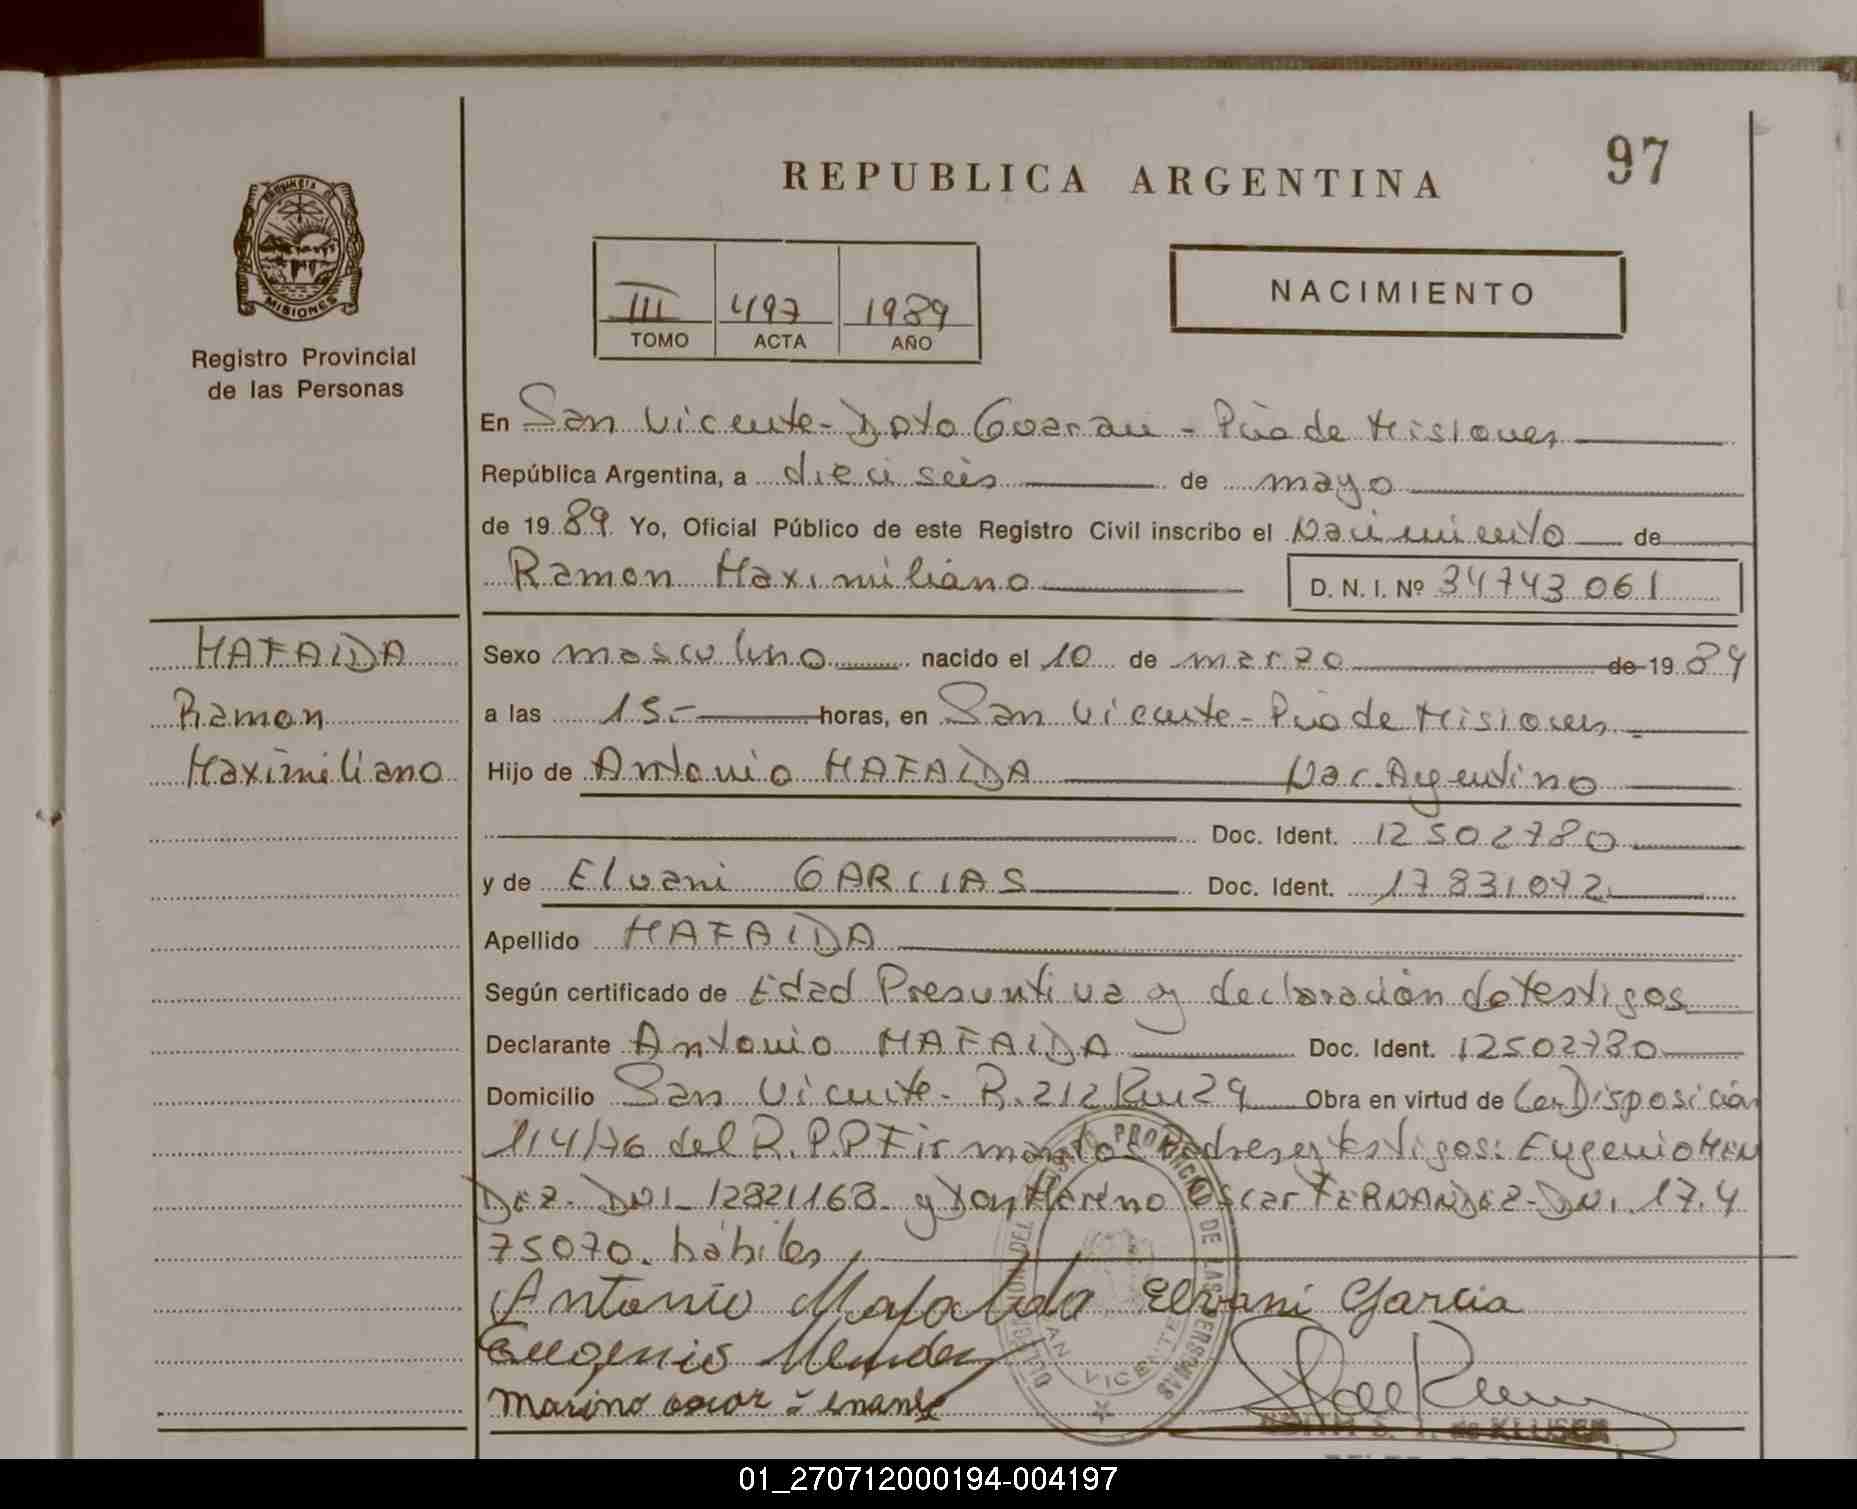 97
REPUBLICA ARGENTINA
PROVINCIA DE
MISIONES
Registro Provincial
de las Personas
III 497 1989
TOMO ACTA AÑO
NACIMIENTO
En San Vicente - Dpto Guarani - Pcia de Misiones
República Argentina, a dieciseis de mayo
de 19 89. Yo, Oficial Público de este Registro Civil inscribo el Nacimiento de
Ramon Maximiliano D. N. I. Nº 34743061
MAFALDA
Ramon
Maximiliano
Sexo masculino nacido el 10 de marzo de 19 89
a las 15.- horas, en San Vicente - Pcia de Misiones
Hijo de Antonio MAFALDA Nac. Argentino
Doc. Ident. 12502780
y de Elvani GARCIAS Doc. Ident. 17831072
Apellido MAFALDA
Según certificado de Edad Presuntiva y declaración de testigos
Declarante Antonio MAFALDA Doc. Ident. 12502780
Domicilio San Vicente - R. 212 Km 29 Obra en virtud de La Disposición
114/76 del R.P.P Firman los Padres y testigos: Eugenio MEN
DEZ - DNI - 12821168 - y Don Marino Oscar FERNANDEZ - DNI. 17.4
75070. hábiles
Antonio Mafalda Elvani Garcia
Eugenio Mendez
Marino oscar
DELEGACION DEL REGISTRO PROVINCIAL DE LAS PERSONAS
SAN VICENTE
de KLUSER
01_270712000194-004197